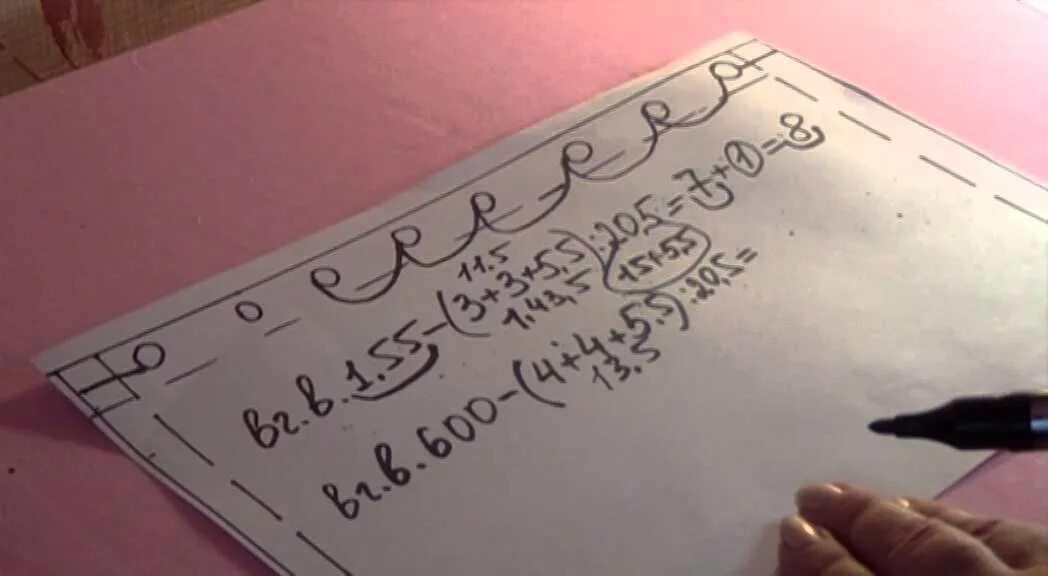 11.5
вг.в.1.55-(3+3+5,5):20,5=7+1=8
1.43,5 15+5,5
вг.в.600-(4+4+5.5):20,5=
13.5